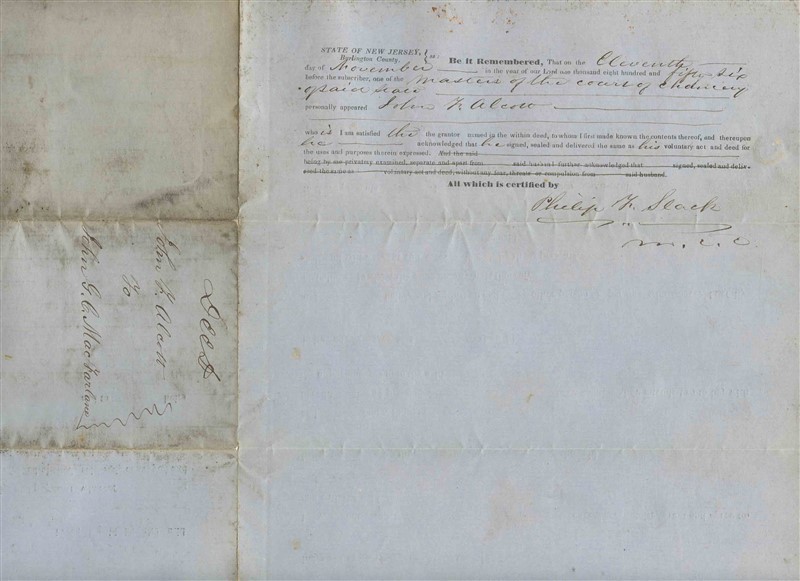 STATE OF NEW JERSEY, } ss:
Burlington County.
Be it Remembered, That on the Eleventh
day of November in the year of our Lord one thousand eight hundred and fifty six
before the subscriber, one of the Masters of the court of Chancery
of said State
personally appeared John F. Alcott
who is I am satisfied the the grantor named in the within deed, to whom I first made known the contents thereof, and thereupon
he acknowledged that he signed, sealed and delivered the same as his voluntary act and deed for
the uses and purposes therein expressed. And the said
being by me privately examined, separate and apart from said husband further acknowledged that signed, sealed and deliv-
ered the same as voluntary act and deed, without any fear, threats or compulsion from said husband.
All which is certified by
Philip F. Slack
M. C. C.
Deed
John F. Alcott
To
John G. C. MacFarlane